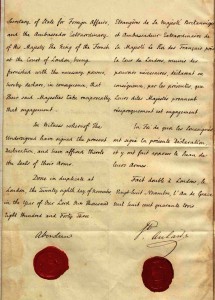 Secretary of State for Foreign Affairs,
and the Ambassador Extraordinary
of His Majesty the King of the French
at the Court of London, being
furnished with the necessary powers,
hereby declare, in consequence, that
Their said Majesties take reciprocally
that engagement.
In Witness whereof the
Undersigned have signed the present
Declaration, and have affixed thereto
the Seals of their Arms.
Done in duplicate at
London, the twenty eighth day of November
in the Year of Our Lord One thousand
Eight Hundred and Forty Three
Aberdeen
Etrangères de Sa Majesté Britannique
et l'Ambassadeur Extraordinaire de
Sa Majesté le Roi des Français près
la Cour de Londres, munis des
pouvoirs nécessaires, déclarent en
conséquence, par les présentes, que
Leurs dites Majestés prennent
réciproquement cet engagement.
En Foi de quoi les Soussignés
ont signé la présente Déclaration
et y ont fait apposer le Sceau de
leurs Armes.
Fait double à Londres, le
Vingt huit Novembre, l'An de Grâce
mil huit cent quarante trois